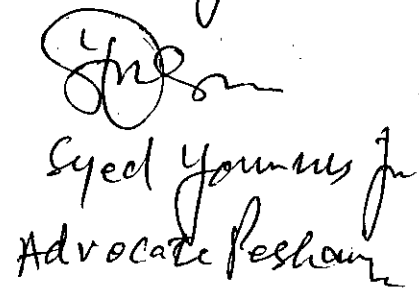 Syed Younus Jn
Advocate Peshawar